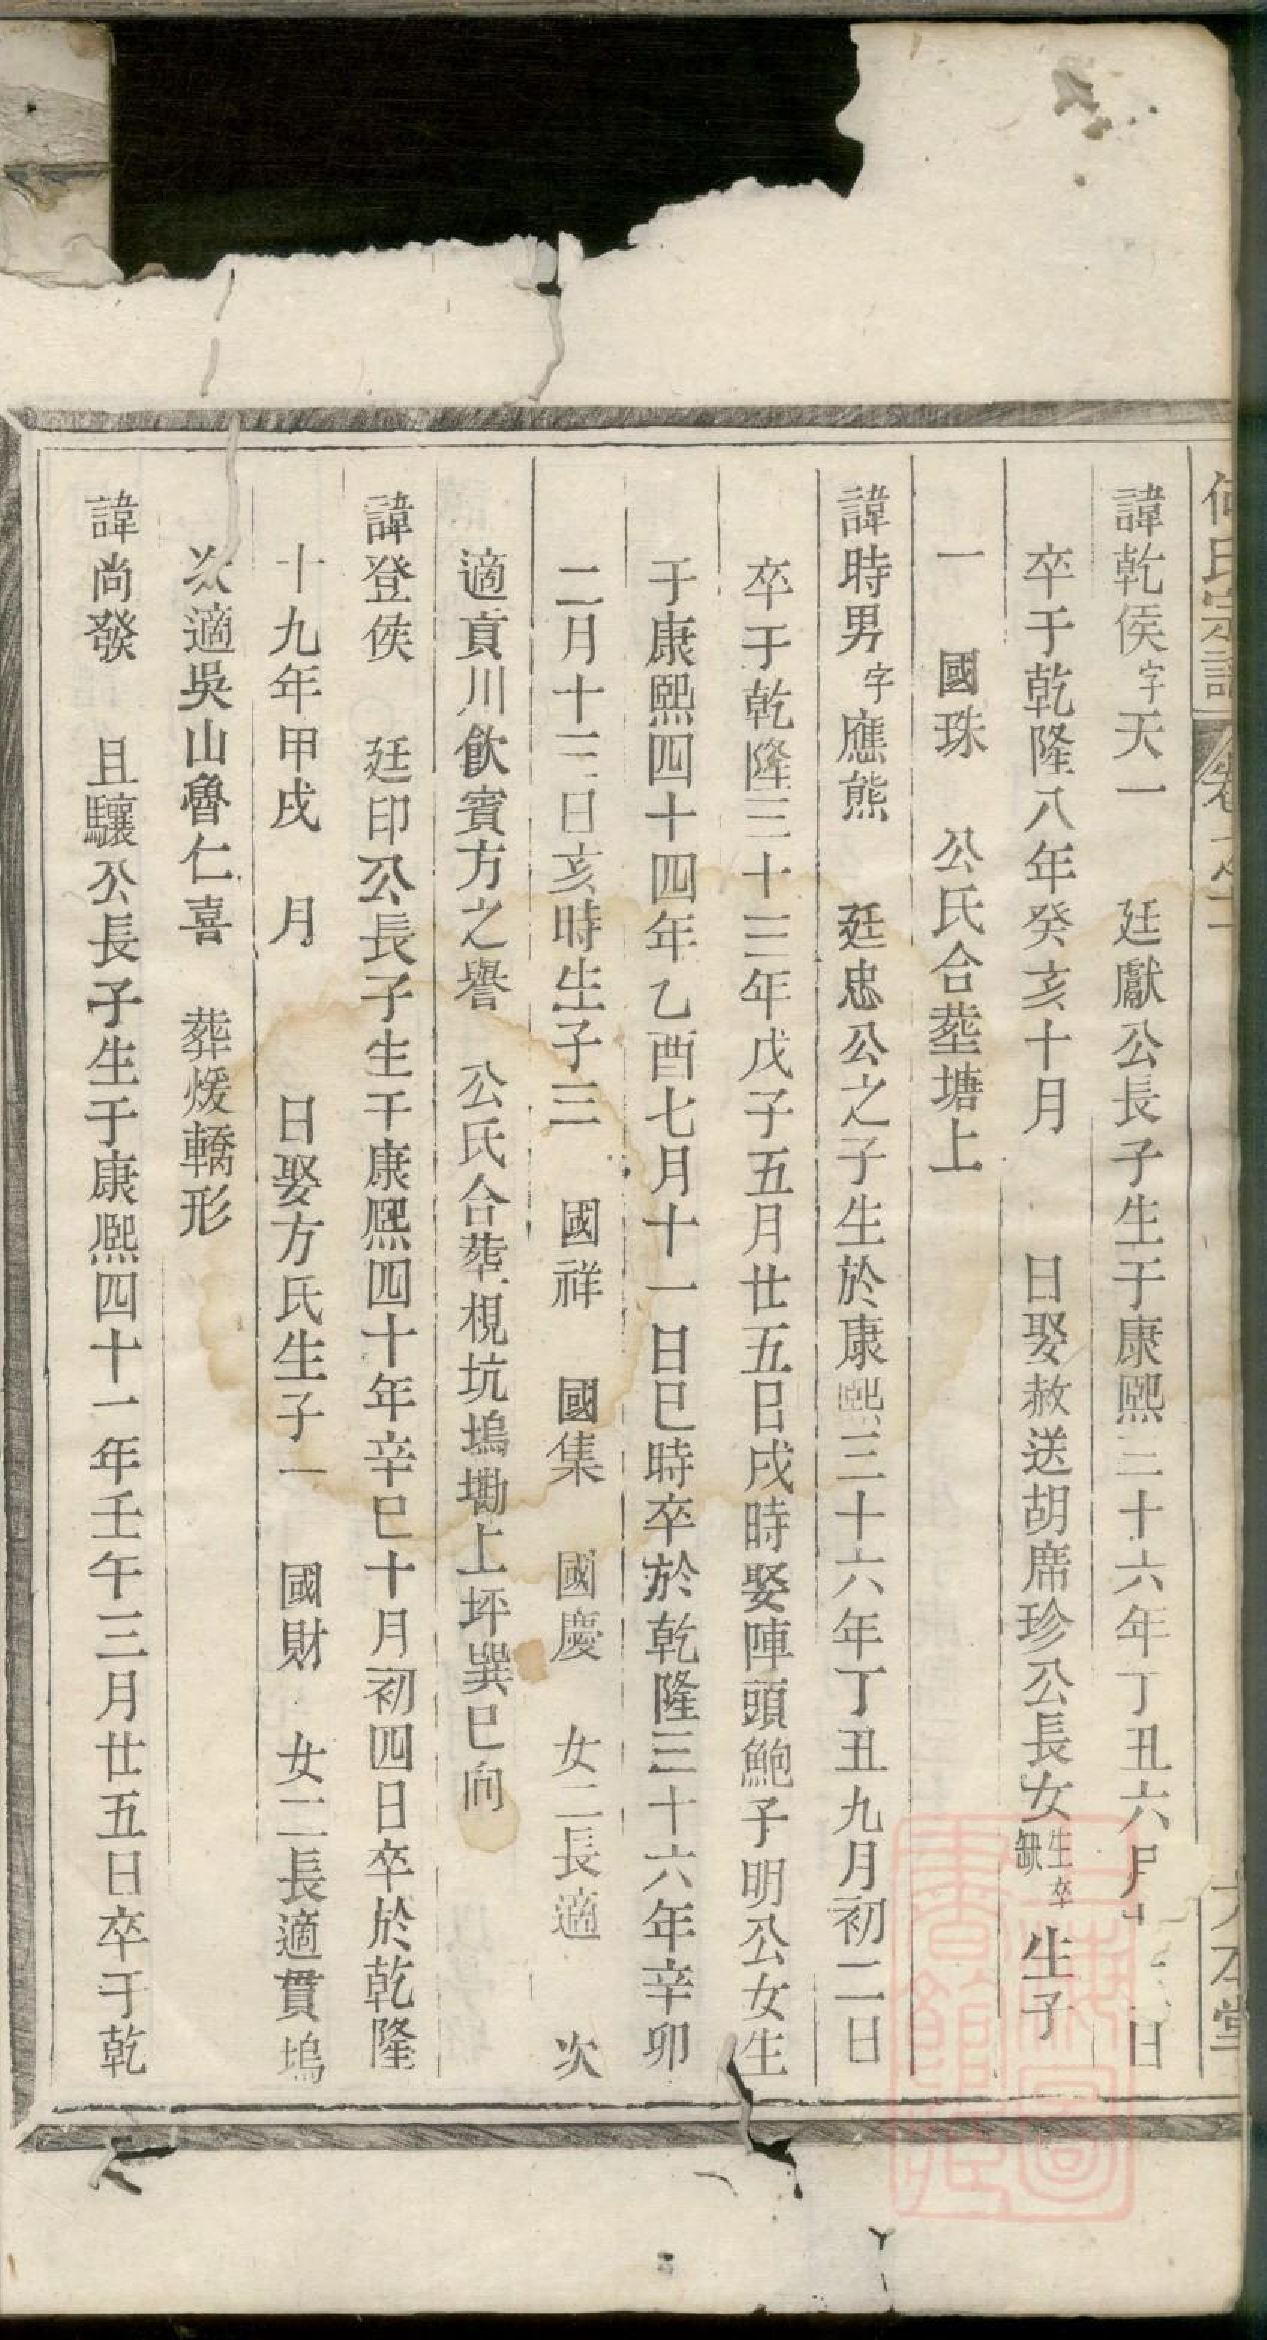 何氏宗譜 卷之二 大本堂
諱乾侯字天一 廷獻公長子生于康熙三十六年丁丑六月 日
卒于乾隆八年癸亥十月 日娶赦送胡席珍公長女生卒缺生子
一 國珠 公氏合塟塘上
諱時男字應熊 廷忠公之子生於康熙三十六年丁丑九月初二日
卒于乾隆三十三年戊子五月廿五日戌時娶陣頭鮑子明公女生
于康熙四十四年乙酉七月十一日巳時卒於乾隆三十六年辛卯
二月十三日亥時生子三 國祥 國集 國慶 女二長適 次
適貢川飲賓方之譽 公氏合塟梘坑塢墈上坪巽巳向
諱登侯 廷印公長子生于康熙四十年辛巳十月初四日卒於乾隆
十九年甲戌 月 日娶方氏生子一 國財 女二長適貫塢
次適吳山魯仁喜 葬煖轎形
諱尚發 且驤公長子生于康熙四十一年壬午三月廿五日卒于乾